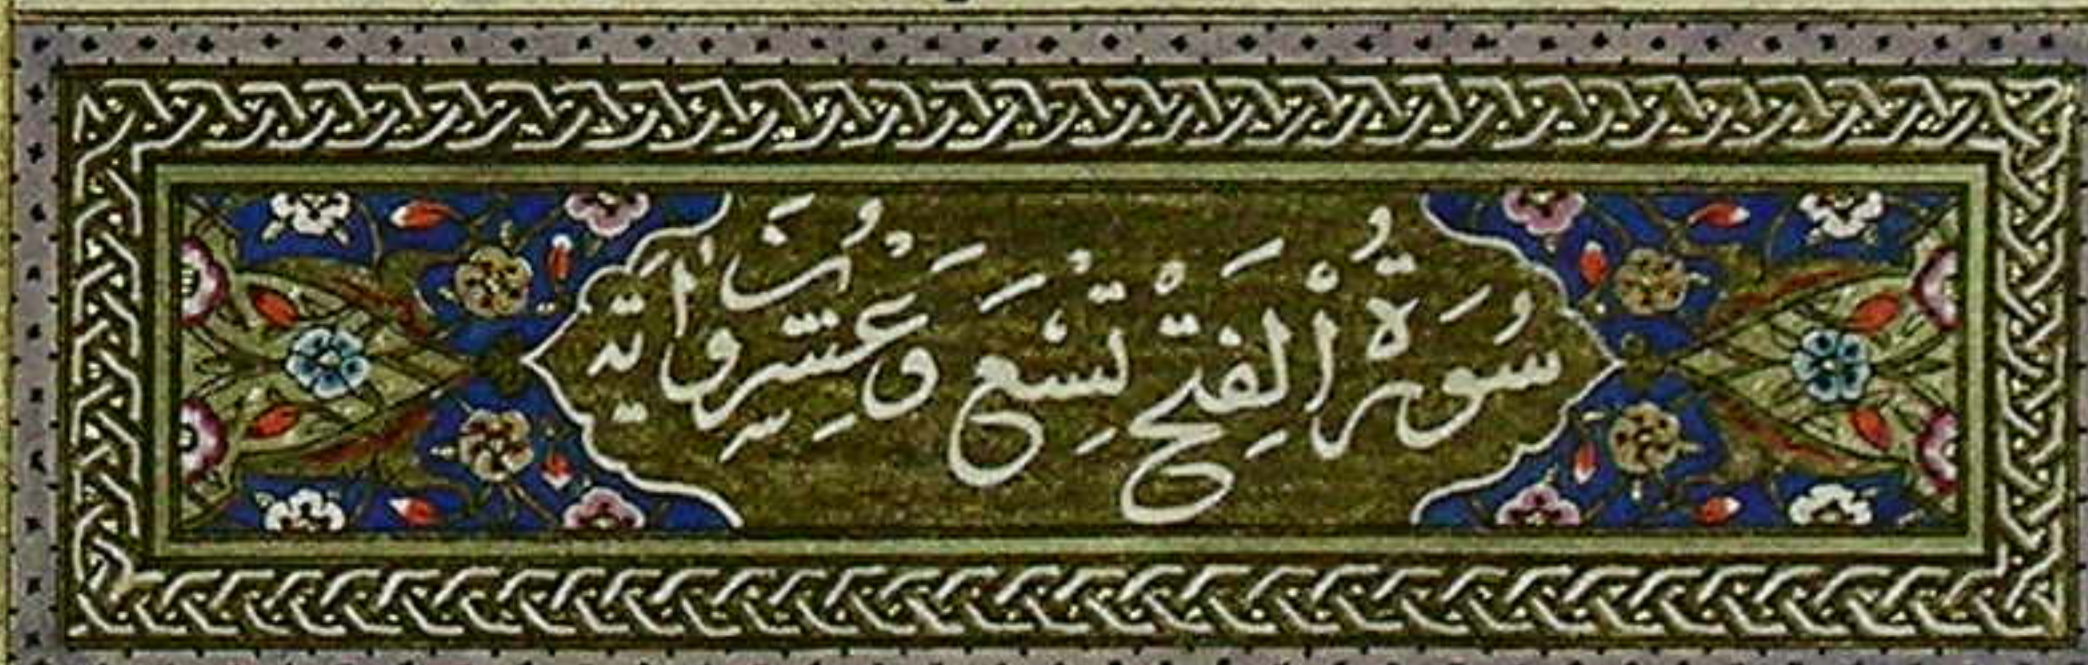 سُورَةُ الْفَتْحِ تِسْعَ وَعِشْرُونَ اٰيَة